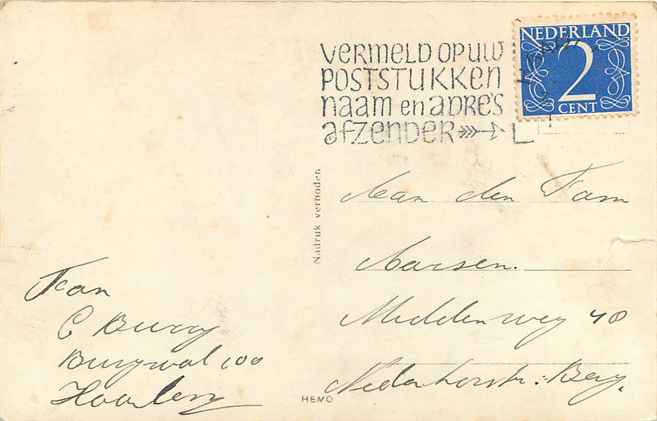 VERMELD OP UW
POSTSTUKKEN
NAAM EN ADRES
AFZENDER
NEDERLAND
2
CENT
Nadruk verboden
Aan den Fam
Aarsen.
Middenweg 40
Nederhorst: Berg.
Fam
C Burry
Burgwal 100
Haarlem
HEMO